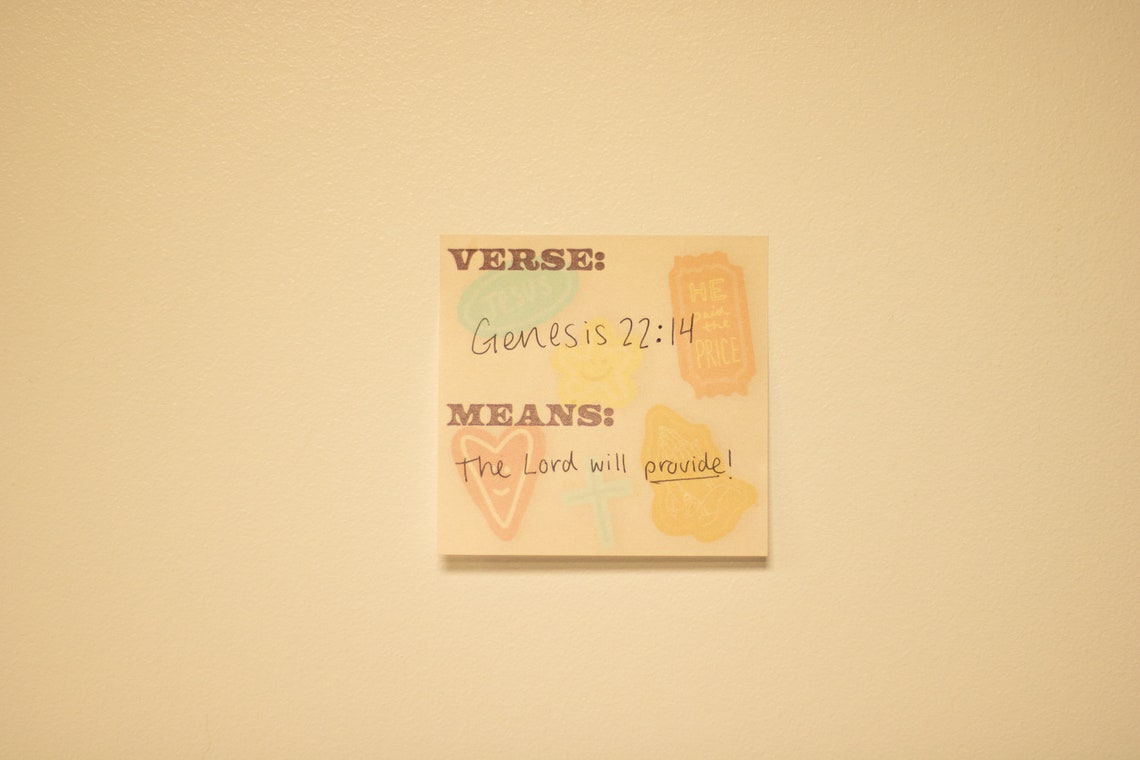 VERSE:
JESUS
HE
paid
the
PRICE
Genesis 22:14
MEANS:
The Lord will provide!